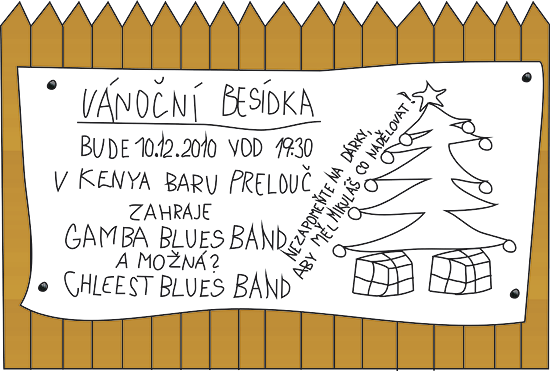 VÁNOČNÍ BESÍDKA
BUDE 10.12.2010 VOD 19:30
V KENYA BARU PRELOUČ
ZAHRAJE
GAMBA BLUES BAND
A MOŽNÁ?
CHLEEST BLUES BAND
NEZAPOMEŇTE NA DÁRKY,
ABY MĚL MIKULÁŠ CO NADĚLOVAT!